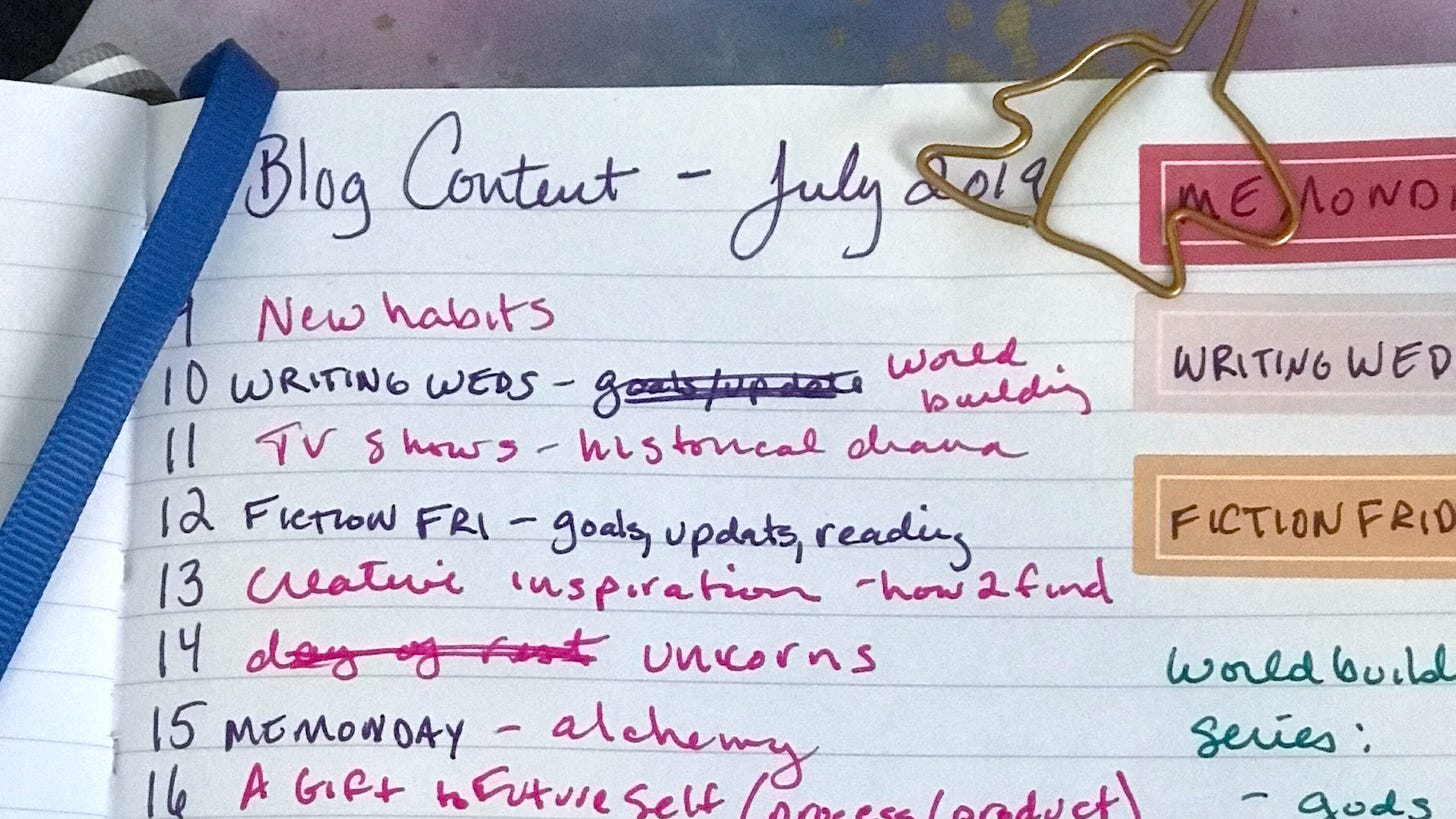 Blog Content - July 2019
9 New habits
10 WRITING WEDS - goals/update world building
11 TV shows - historical drama
12 FICTION FRI - goals, updats, reading
13 Creative inspiration - how 2 find
14 day of rest unicorns
15 ME MONDAY - alchemy
16 A Gift to Future Self (process/product)
ME MOND
WRITING WED
FICTION FRID
World build
Series:
- gods